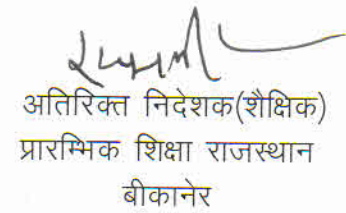 अतिरिक्त निदेशक(शैक्षिक)
प्रारम्भिक शिक्षा राजस्थान
बीकानेर